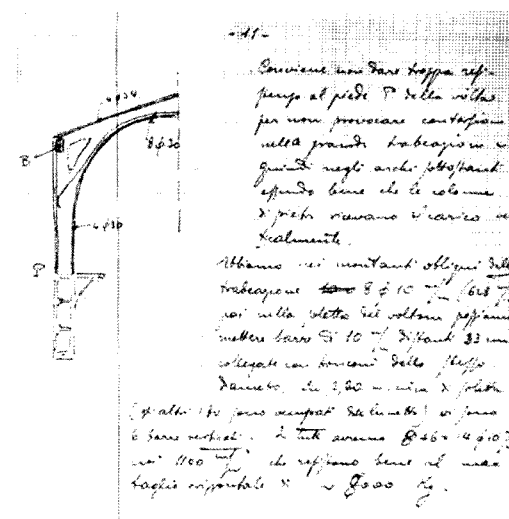 - 41 -
Conviene non dare troppa resi-
stenza al piede P della volta
per non provocare contorsione
nella grande trabeazione e
quindi negli archi sottostanti
essendo bene che le colonne
di pietra ricevano il carico
ticalmente.
4 ϕ 24
8 ϕ 20
B
4 ϕ 30
P
Abbiamo nei montanti obliqui della
trabeazione 8 ϕ 10 m/m (628
poi nella soletta del voltone possiamo
mettere barre di 10 m/m distanti 33 cm
collegate con tronconi dello stesso
diametro. In 2,00 m. circa di soletta
(gli altri sono occupati da lunette) vi sono
6 barre verticali. In tutti avremo 8+6 = 14 ϕ 10
1100 che resistono bene al
taglio orizzontale di ~ 8000 Kg.